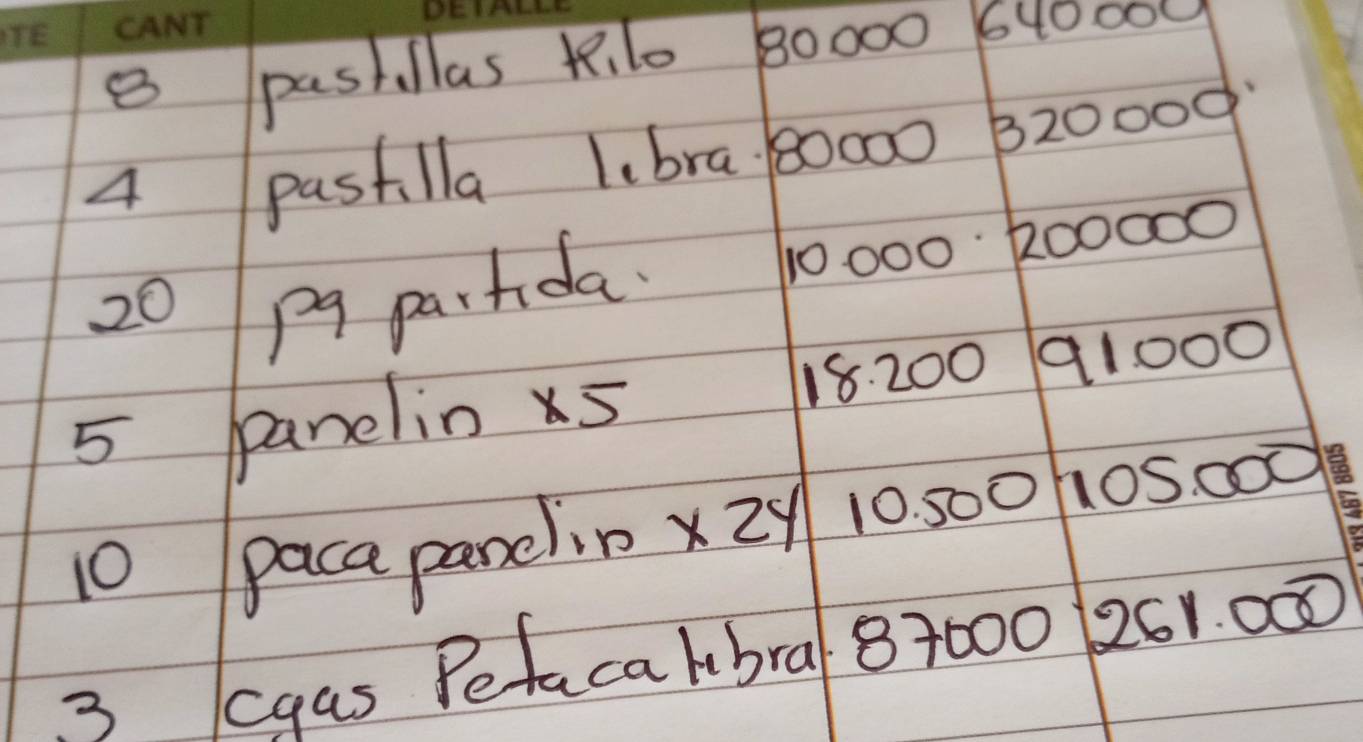 TE CANT DETALLE
8 pastillas Kilo 80000 640000
4 pastilla libra. 80000 320000
20 pq partida. 10.000. 200000
5 panelin x5 18.200 91.000
10 paca panelin x 24 10.500 105.000
3 cajas Petaca libra. 87000 261.000
487 8805